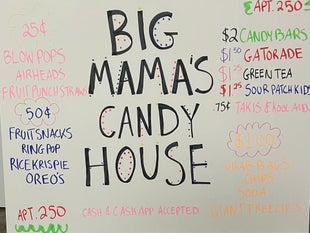 25¢
BLOW POPS
AIRHEADS
FRUIT PUNCH STRAWS
50¢
FRUIT SNACKS
RING POP
RICE KRISPIE
OREO'S
APT. 250
BIG
MAMA'S
CANDY
HOUSE
CASH & CASHAPP ACCEPTED
APT. 250
$2 CANDY BARS
$1.50 GATORADE
$1.25 GREEN TEA
$1.25 SOUR PATCH KIDS
.75¢ TAKIS & KOOL AID
$1.00
GRAB BAGS
CHIPS
SODA